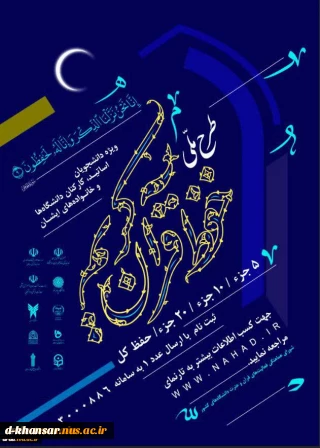 إِنَّا نَحْنُ نَزَّلْنَا الذِّكْرَ وَإِنَّا لَهُ لَحَافِظُونَ
طرح ملی
حفظ قرآن کریم
ویژه دانشجویان
اساتید، کارکنان دانشگاه‌ها
و خانواده‌های ایشان
۵ جزء / ۱۰ جزء / ۲۰ جزء / حفظ کل
ثبت نام با ارسال عدد ۱ به سامانه ۲۰۰۰۰۸۸۶
جهت کسب اطلاعات بیشتر به تارنمای
WWW.NAHAD.IR
مراجعه نمایید
d-khansar.nus.ac.ir